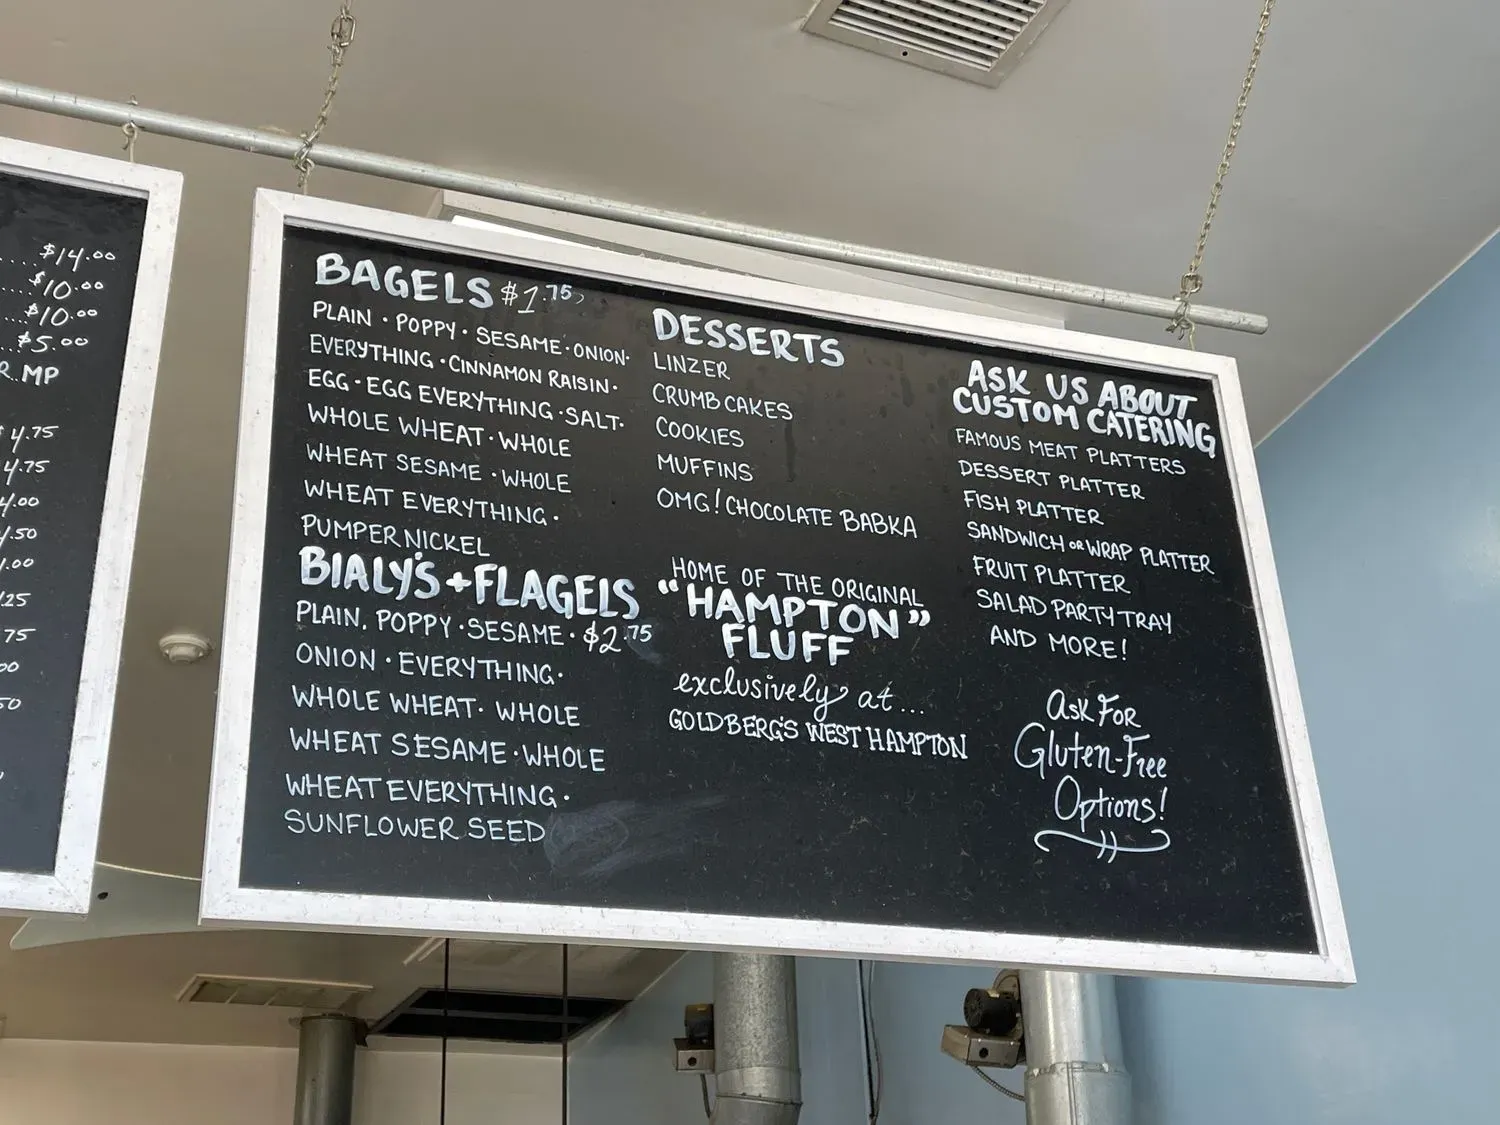 $14.00
$10.00
$10.00
$5.00
MP
4.75
4.75
.00
.50
.00
.25
75
00
50
BAGELS $1.75
PLAIN · POPPY · SESAME · ONION·
EVERYTHING · CINNAMON RAISIN·
EGG · EGG EVERYTHING · SALT·
WHOLE WHEAT · WHOLE
WHEAT SESAME · WHOLE
WHEAT EVERYTHING ·
PUMPERNICKEL
BIALY'S + FLAGELS
PLAIN. POPPY · SESAME · $2.75
ONION · EVERYTHING·
WHOLE WHEAT· WHOLE
WHEAT SESAME · WHOLE
WHEAT EVERYTHING ·
SUNFLOWER SEED
DESSERTS
LINZER
CRUMB CAKES
COOKIES
MUFFINS
OMG! CHOCOLATE BABKA
HOME OF THE ORIGINAL
"HAMPTON"
FLUFF
exclusively at...
GOLDBERG'S WEST HAMPTON
ASK US ABOUT
CUSTOM CATERING
FAMOUS MEAT PLATTERS
DESSERT PLATTER
FISH PLATTER
SANDWICH OR WRAP PLATTER
FRUIT PLATTER
SALAD PARTY TRAY
AND MORE!
Ask For
Gluten-Free
Options!